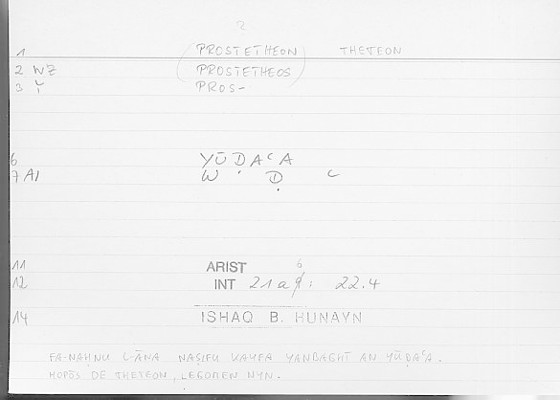 2
1 (PROSTETHEON) THETEON
2 WZ (PROSTETHEOS)
3 PROS-
6 YŪḌAʿA
7 AI W Ḍ ʿ
11 ARIST 6
12 INT 21a : 22.4
14 ISHAQ B. HUNAYN
FA-NAḤNU L-ĀNA NAṢIFU KAYFA YANBAGHĪ AN YŪḌAʿA.
HOPŌS DE THETEON, LEGOMEN NYN.